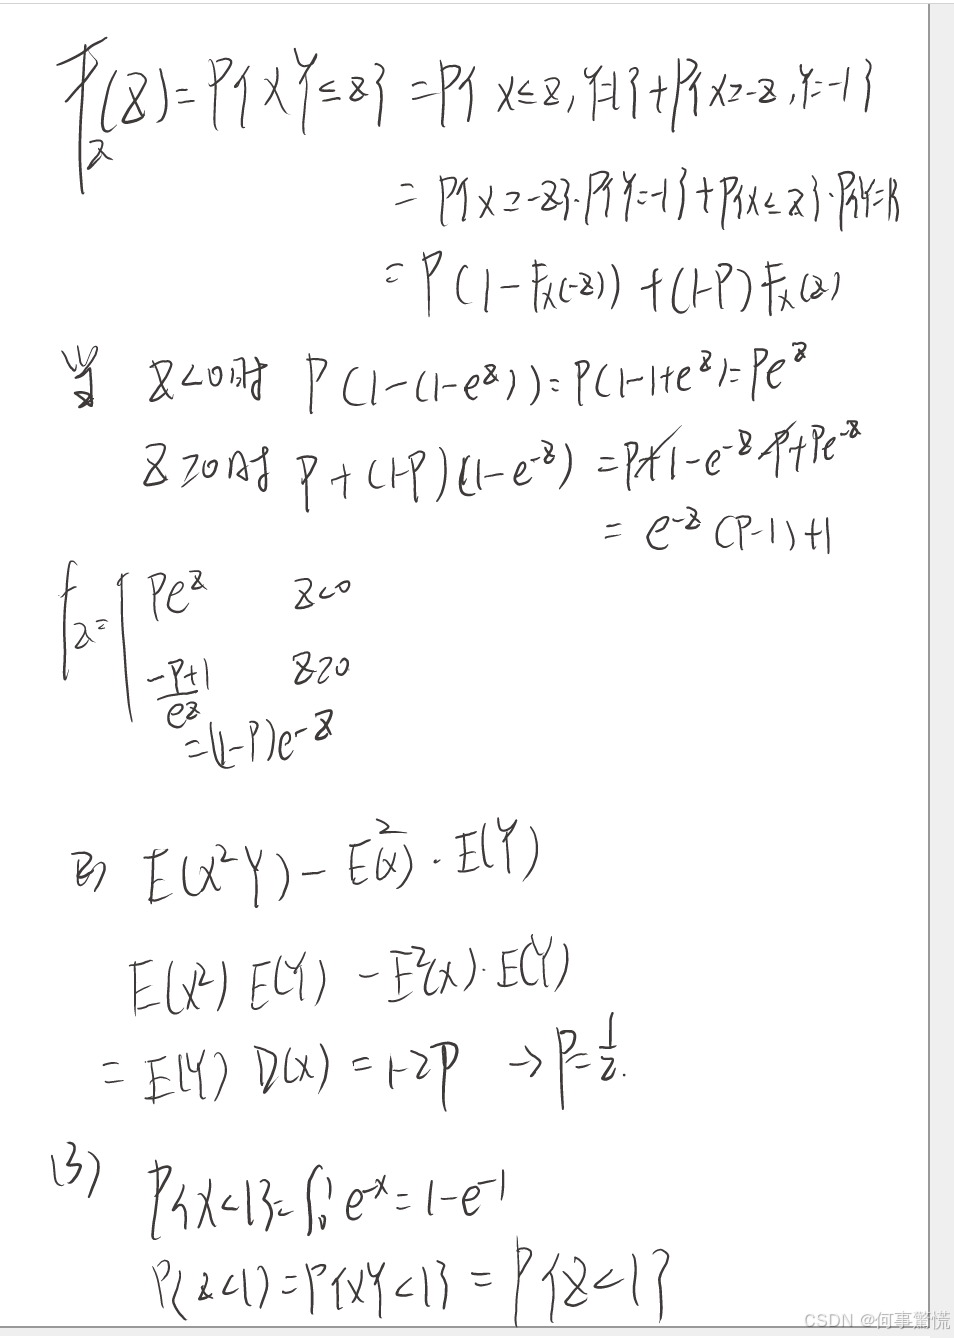 F_Z(z) = P{XY ≤ z} = P{X ≤ z, Y=1} + P{X ≥ -z, Y=-1}
= P{X ≥ -z}·P{Y=-1} + P{X ≤ z}·P{Y=1}
= P(1-F_X(-z)) + (1-P)F_X(z)
当 z<0时 P(1-(1-e^z)) = P(1-1+e^z) = Pe^z
z≥0时 P+(1-P)(1-e^{-z}) = P+1-e^{-z}-P+Pe^{-z}
= e^{-z}(P-1)+1
f_z = { Pe^z z<0
(-P+1)/e^z z≥0
=(1-P)e^{-z}
(2) E(X²Y) - E²(X)·E(Y)
E(X²)E(Y) - E²(X)·E(Y)
= E(Y)D(X) = 1-2P → P=1/2.
(3) P{X<1} = ∫_0^1 e^{-x} = 1-e^{-1}
P(Z<1) = P{XY<1} = P{Z<1}
CSDN @何事驚慌